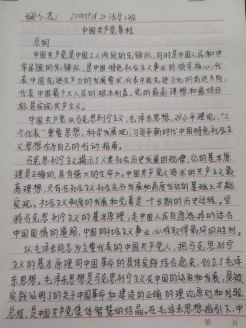 中国共产党章程
总纲
中国共产党是中国工人阶级的先锋队,同时是中国人民和中
华民族的先锋队,是中国特色社会主义事业的领导核心,代
表中国先进生产力的发展要求,代表中国先进文化的前进方向,
代表中国最广大人民的根本利益。党的最高理想和最终目
标是实现共产主义。
中国共产党以马克思列宁主义、毛泽东思想、邓小平理论、“三
个代表”重要思想、科学发展观、习近平新时代中国特色社会主
义思想作为自己的行动指南。
马克思列宁主义揭示了人类社会历史发展的规律,它的基本原
理是正确的,具有强大的生命力。中国共产党人追求的共产主义最
高理想,只有在社会主义社会充分发展和高度发达的基础上才能
实现。社会主义制度的发展和完善是一个长期的历史过程。坚
持马克思列宁主义的基本原理,走中国人民自愿选择的适合
中国国情的道路,中国的社会主义事业必将取得最终的胜利。
以毛泽东同志为主要代表的中国共产党人,把马克思列宁
主义的基本原理同中国革命的具体实践结合起来,创立了毛泽
东思想。毛泽东思想是马克思列宁主义在中国的运用和发展,是被
实践证明了的关于中国革命和建设的正确的理论原则和经验
总结,是中国共产党集体智慧的结晶。在毛泽东思想指引下,中